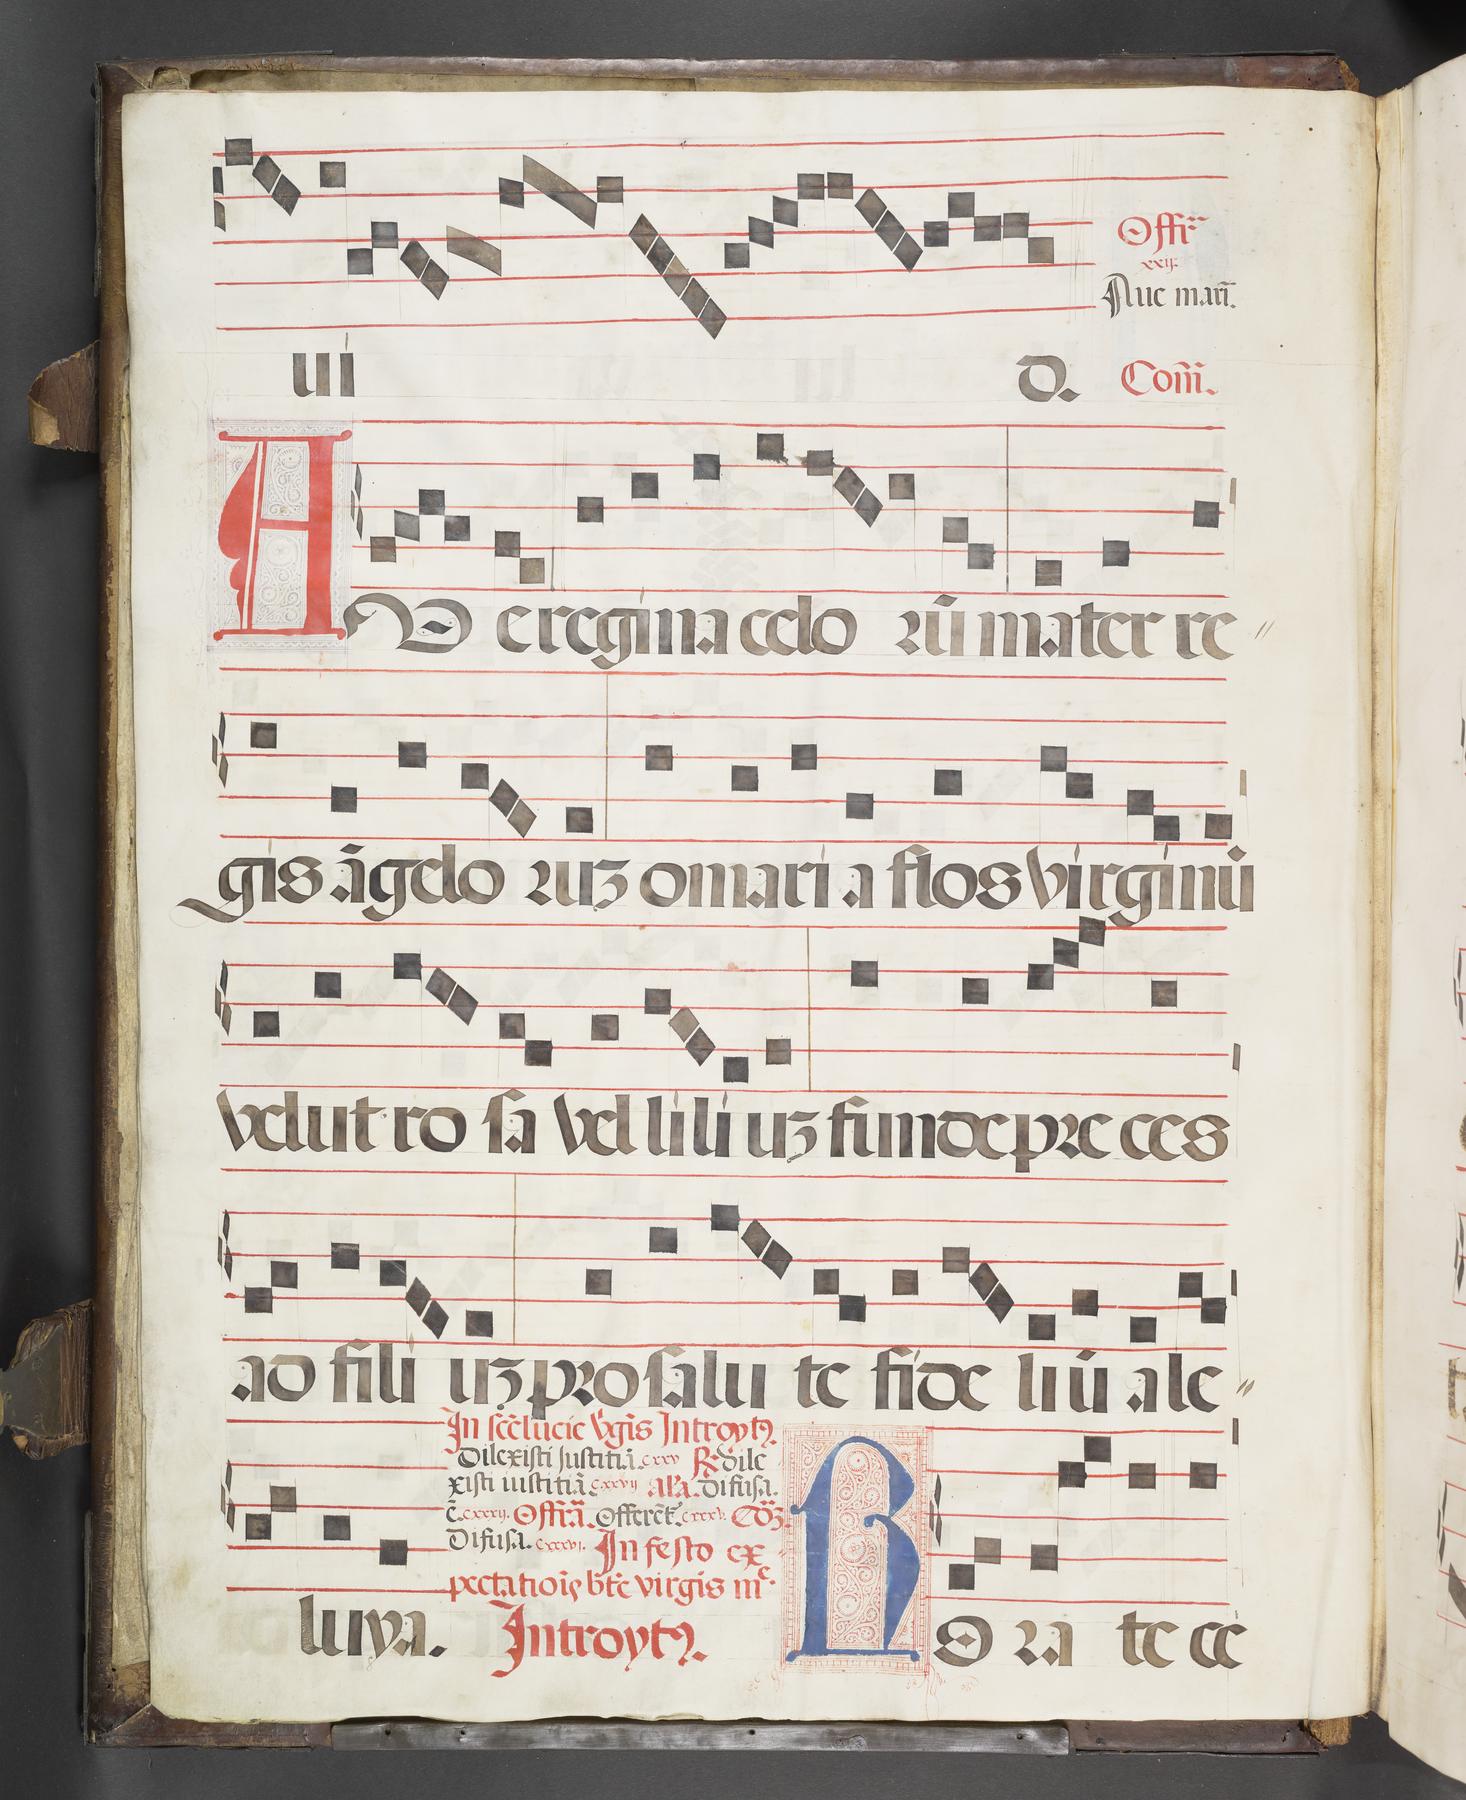 Offr̃
xxij.
Aue mari̅.
ui d. Com̃.
AV e regina celo rū mater re
gis āgelo ruꝫ o maria flos virginū
velut ro sa vel lili uꝫ funde pre ces
ad fili uꝫ pro salu te fide liū ale
In scẽ lucie v̾gĩs Introytꝯ.
Dilexisti iustitiā. cxxv ꝶ. dile
xisti iustitiā cxxvij al'a. difusa.
c̄. cxxxij. Offr̃ã. Offerẽt̃. cxxxv. Cõꝫ.
Difusa. cxxxvj. In festo ex
pectatiõis bt̃e virgĩs mᵉ.
luya. Introytꝯ. RO ra te ce